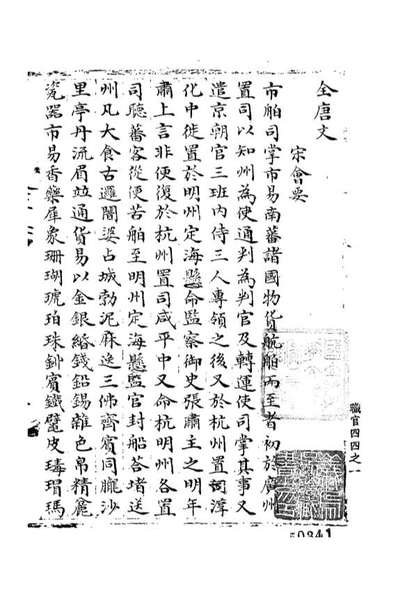 全唐文
宋會要
市舶司掌市易南蕃諸國物貨航舶而至者初於廣州
置司以知州為使通判為判官及轉運使司掌其事又
遣京朝官三班內侍三人專領之後又於杭州置司淳
化中徙置於明州定海縣命監察御史張肅主之明年
肅上言非便復於杭州置司咸平中又命杭明州各置
司聽蕃客從便若舶至明州定海縣監官封船荅堵送
州凡大食古邏闍婆占城勃泥麻逸三佛齊賓同朧沙
里亭丹流眉竝通貨易以金銀緡錢鉛錫雜色帛精麄
瓷器市易香藥犀象珊瑚琥珀珠釧賓鐵鼊皮瑇瑁瑪
職官四四之一
50841